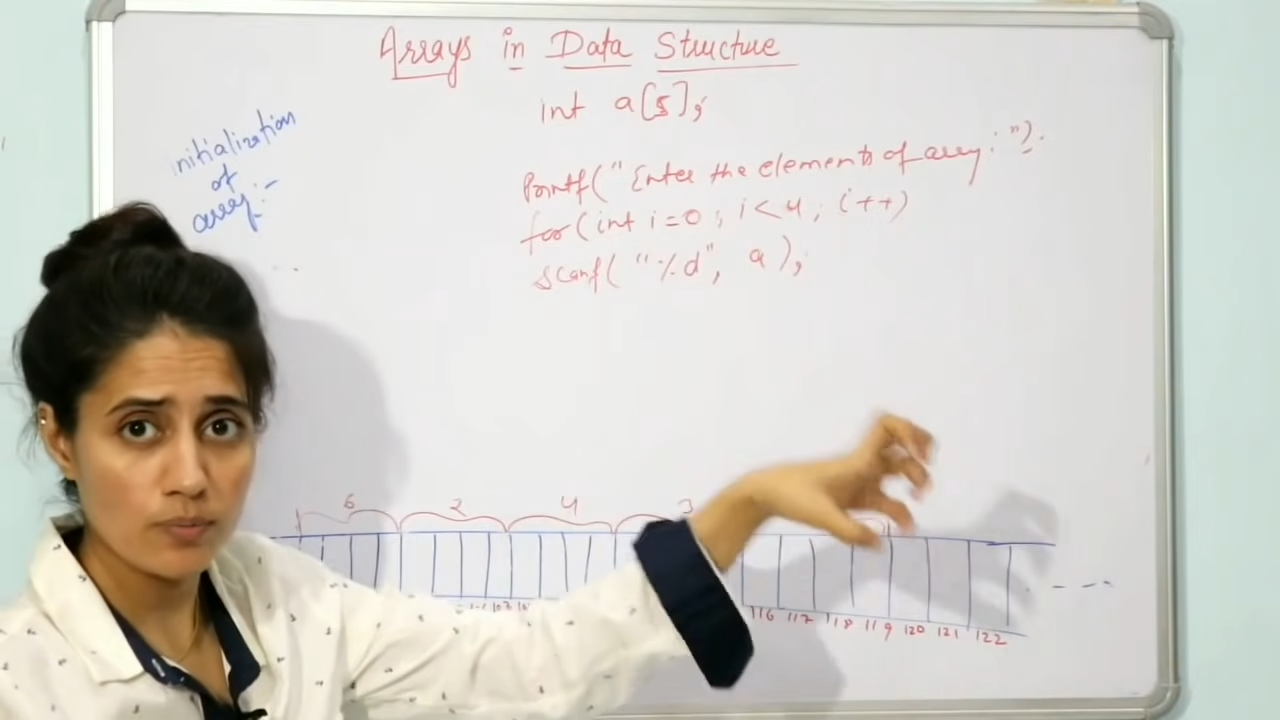 Arrays in Data Structure
int a[5];
initialization
of
array:-
printf("Enter the elements of array: ");
for(int i=0; i<4; i++)
scanf("%d", a);
6 2 4 3
116 117 118 119 120 121 122